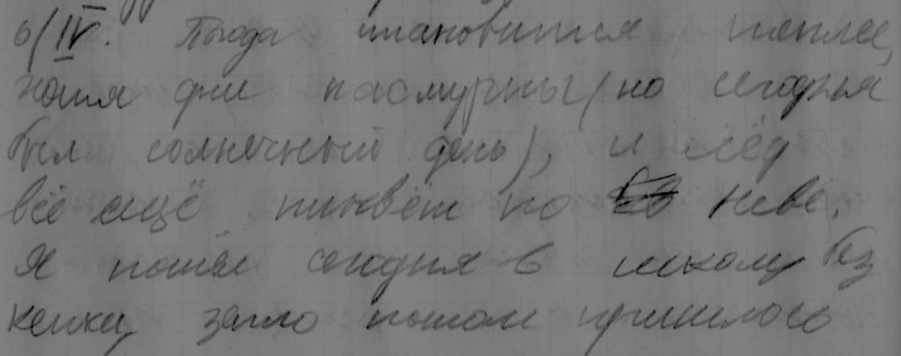 6/IV. Погода становится теплее,
хотя дни пасмурны (но сегодня
был солнечный день), и лёд
всё ещё плывёт по Неве.
Я пошёл сегодня в школу без
кепки, зато потом пришлось